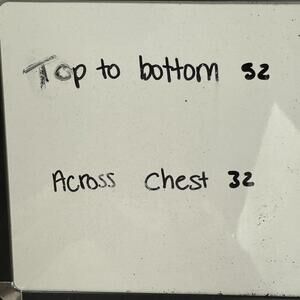 Top to bottom 52
Across Chest 32